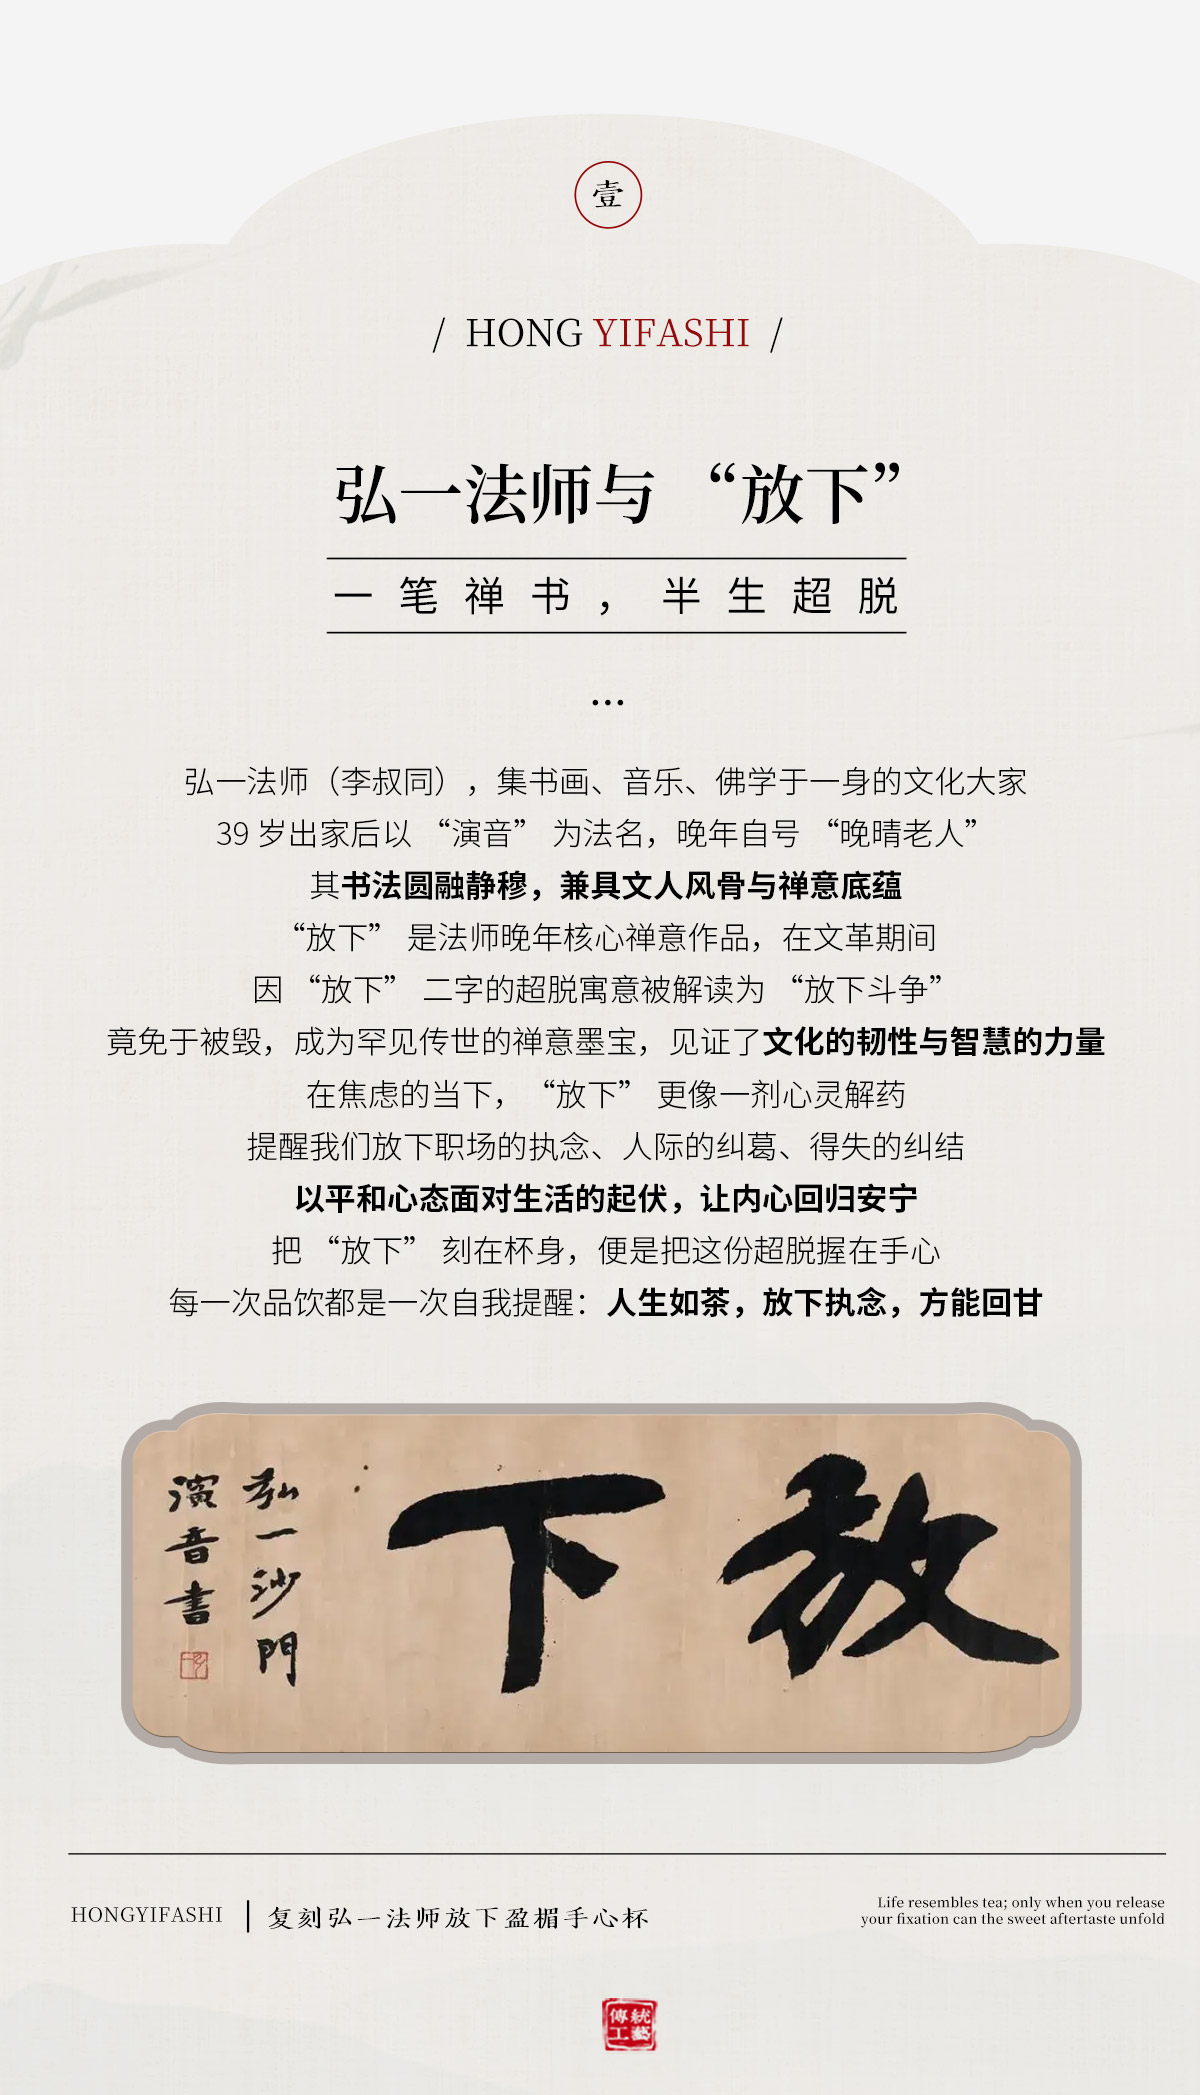 壹
/ HONG YIFASHI /
弘一法师与 “放下”
一笔禅书，半生超脱
...
弘一法师（李叔同），集书画、音乐、佛学于一身的文化大家
39 岁出家后以 “演音” 为法名，晚年自号 “晚晴老人”
其书法圆融静穆，兼具文人风骨与禅意底蕴
“放下” 是法师晚年核心禅意作品，在文革期间
因 “放下” 二字的超脱寓意被解读为 “放下斗争”
竟免于被毁，成为罕见传世的禅意墨宝，见证了文化的韧性与智慧的力量
在焦虑的当下， “放下” 更像一剂心灵解药
提醒我们放下职场的执念、人际的纠葛、得失的纠结
以平和心态面对生活的起伏，让内心回归安宁
把 “放下” 刻在杯身，便是把这份超脱握在手心
每一次品饮都是一次自我提醒：人生如茶，放下执念，方能回甘
放下
弘一沙門
演音書
HONGYIFASHI | 复刻弘一法师放下盈楣手心杯
Life resembles tea; only when you release
your fixation can the sweet aftertaste unfold
傳統
工藝